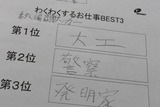 わくわくするお仕事BEST3
第1位 大工
第2位 警察
第3位 発明家